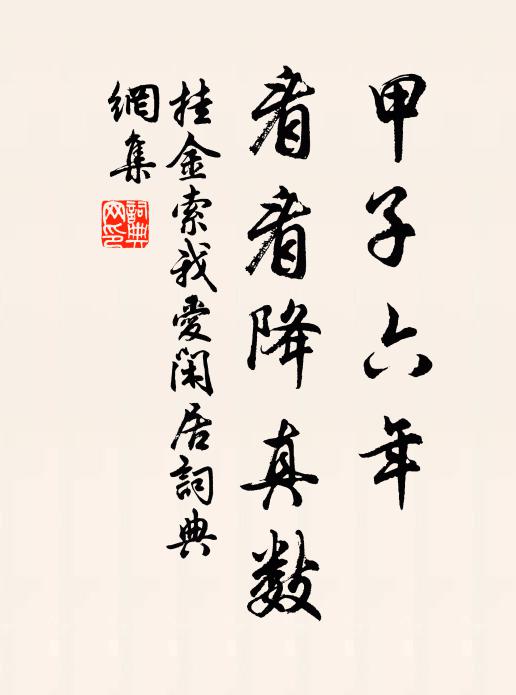 甲子六年
看看降真数
挂金索我愛閑居詞典
網集
詞典
网印